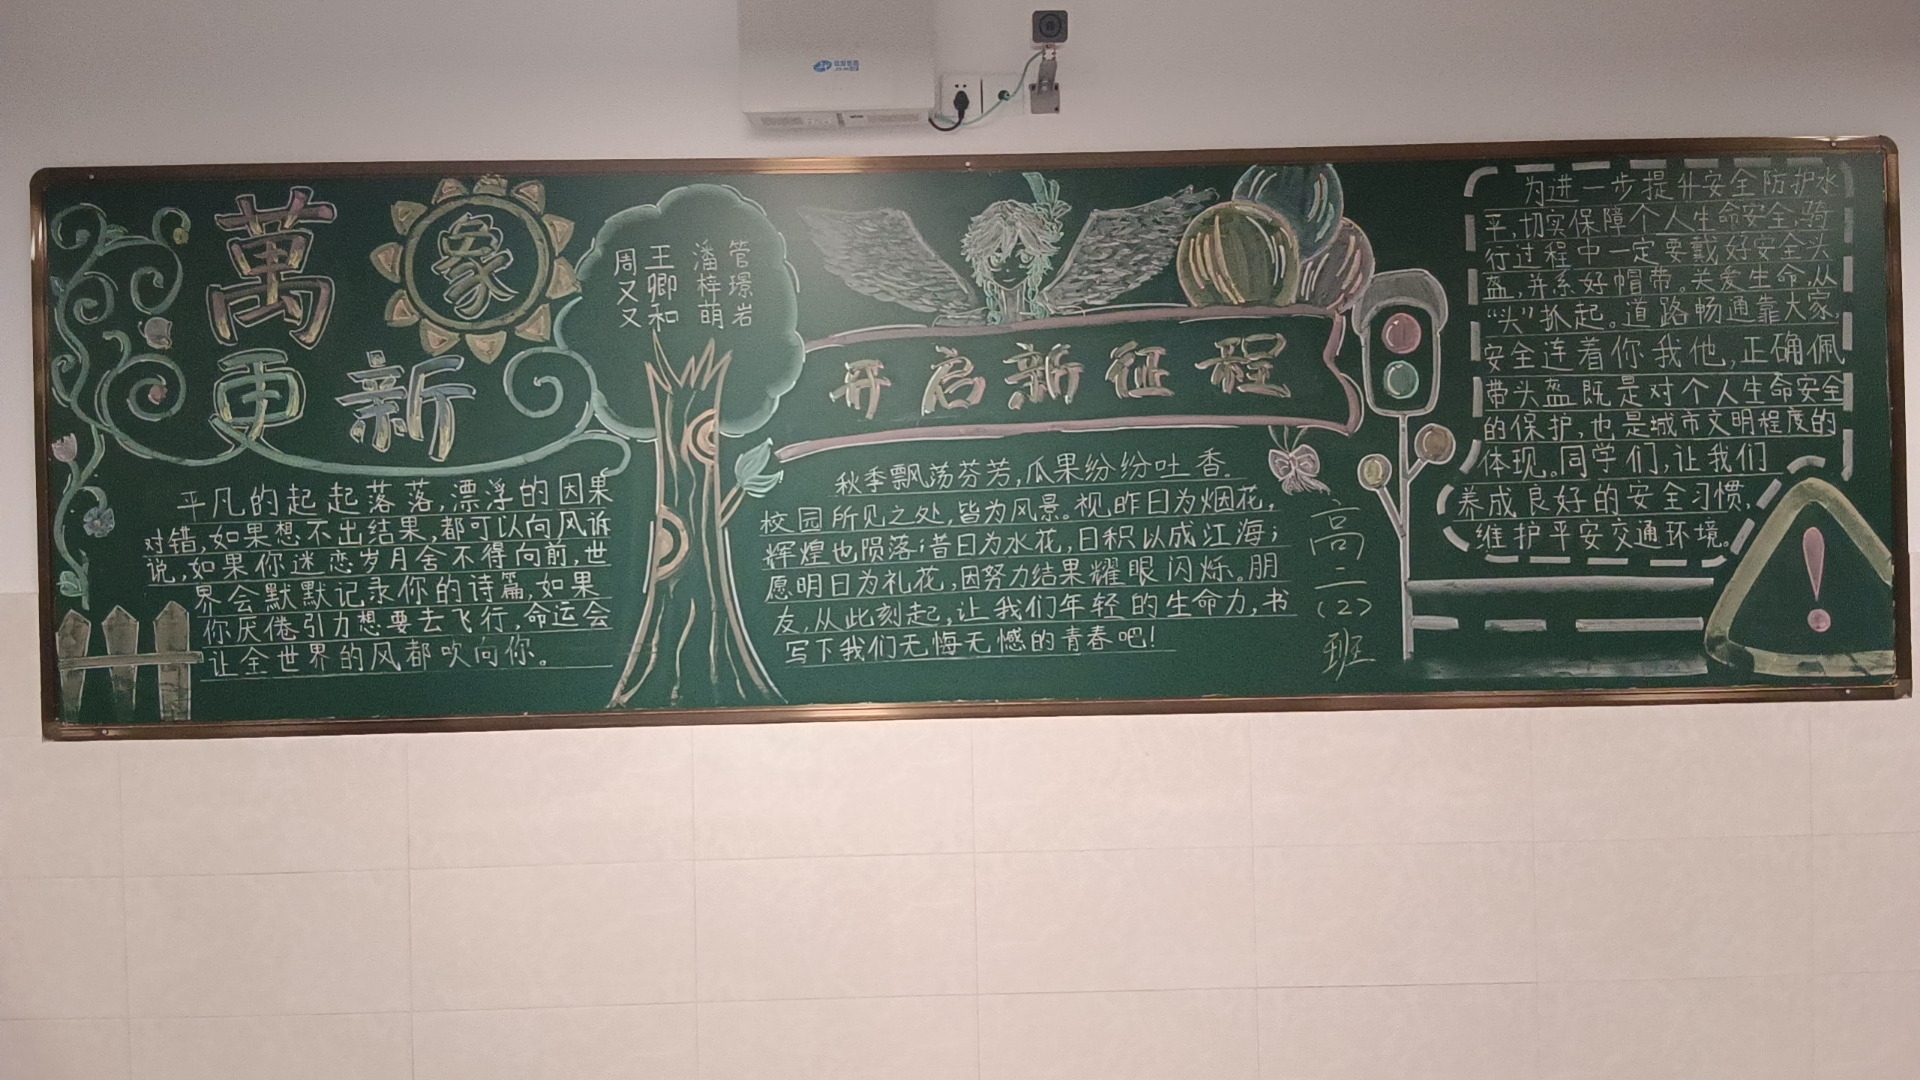 萬象
更新
平凡的起起落落,漂浮的因果
对错,如果想不出结果,都可以向风诉
说,如果你迷恋岁月舍不得向前,世
界会默默记录你的诗篇,如果
你厌倦引力想要去飞行,命运会
让全世界的风都吹向你。
管璟岩
潘梓萌
王卿和
周又又
开启新征程
秋季飘荡芬芳,瓜果纷纷吐香.
校园所见之处,皆为风景。视,昨日为烟花,
辉煌也陨落;昔日为水花,日积以成江海;
愿明日为礼花,因努力结果耀眼闪烁。朋
友,从此刻起,让我们年轻的生命力,书
写下我们无悔无憾的青春吧!
高二(2)班
为进一步提升安全防护水
平,切实保障个人生命安全,骑
行过程中一定要戴好安全头
盔,并系好帽带。关爱生命,从
“头”抓起。道路畅通靠大家,
安全连着你我他,正确佩
带头盔既是对个人生命安全
的保护,也是城市文明程度的
体现。同学们,让我们
养成良好的安全习惯,
维护平安交通环境。
!